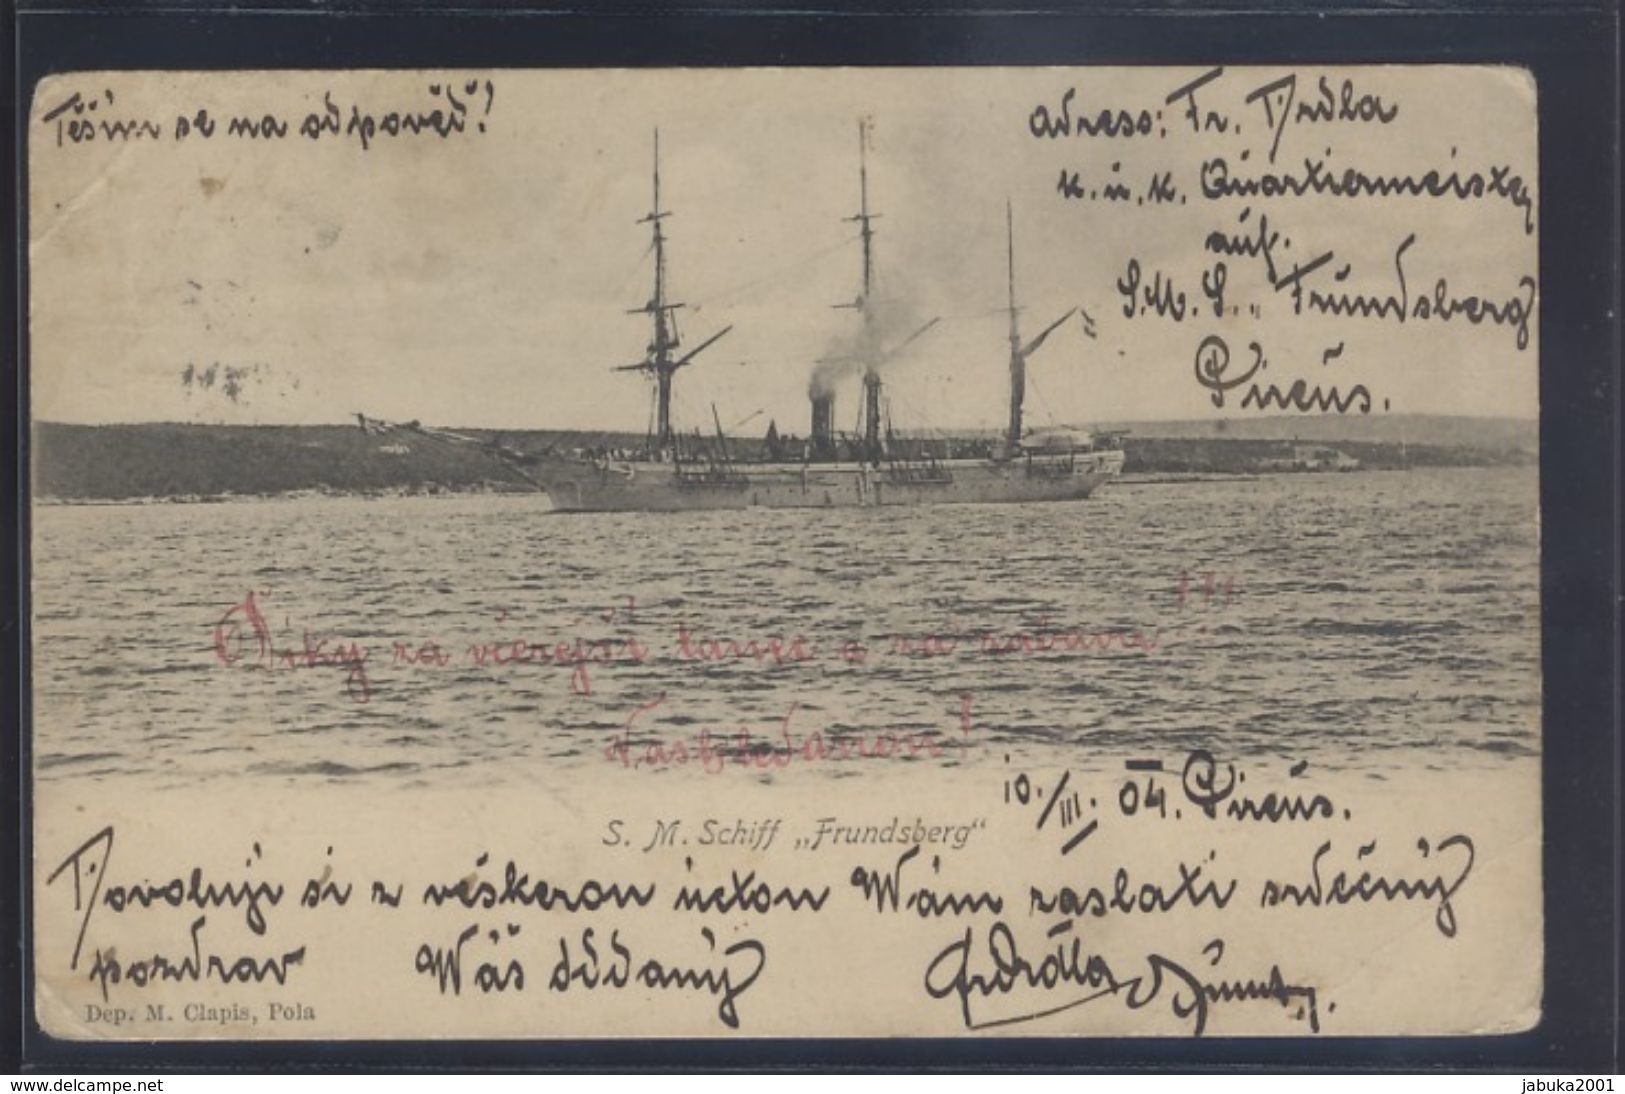 Těším se na odpověď!
Adress: Fr. Trdla
k. u. k. Quartiermeister
auf.
S. M. S. „Frundsberg
Pireus.
Díky za včerejší tanec a za zábavu !!!
Nashledanou!
10./III. 04. Pireus.
S. M. Schiff „Frundsberg“
Dovoluji si z veškerou úctou Wám zaslati srdečný
pozdrav Wáš oddaný
Dep. M. Clapis, Pola
www.delcampe.net
jabuka2001